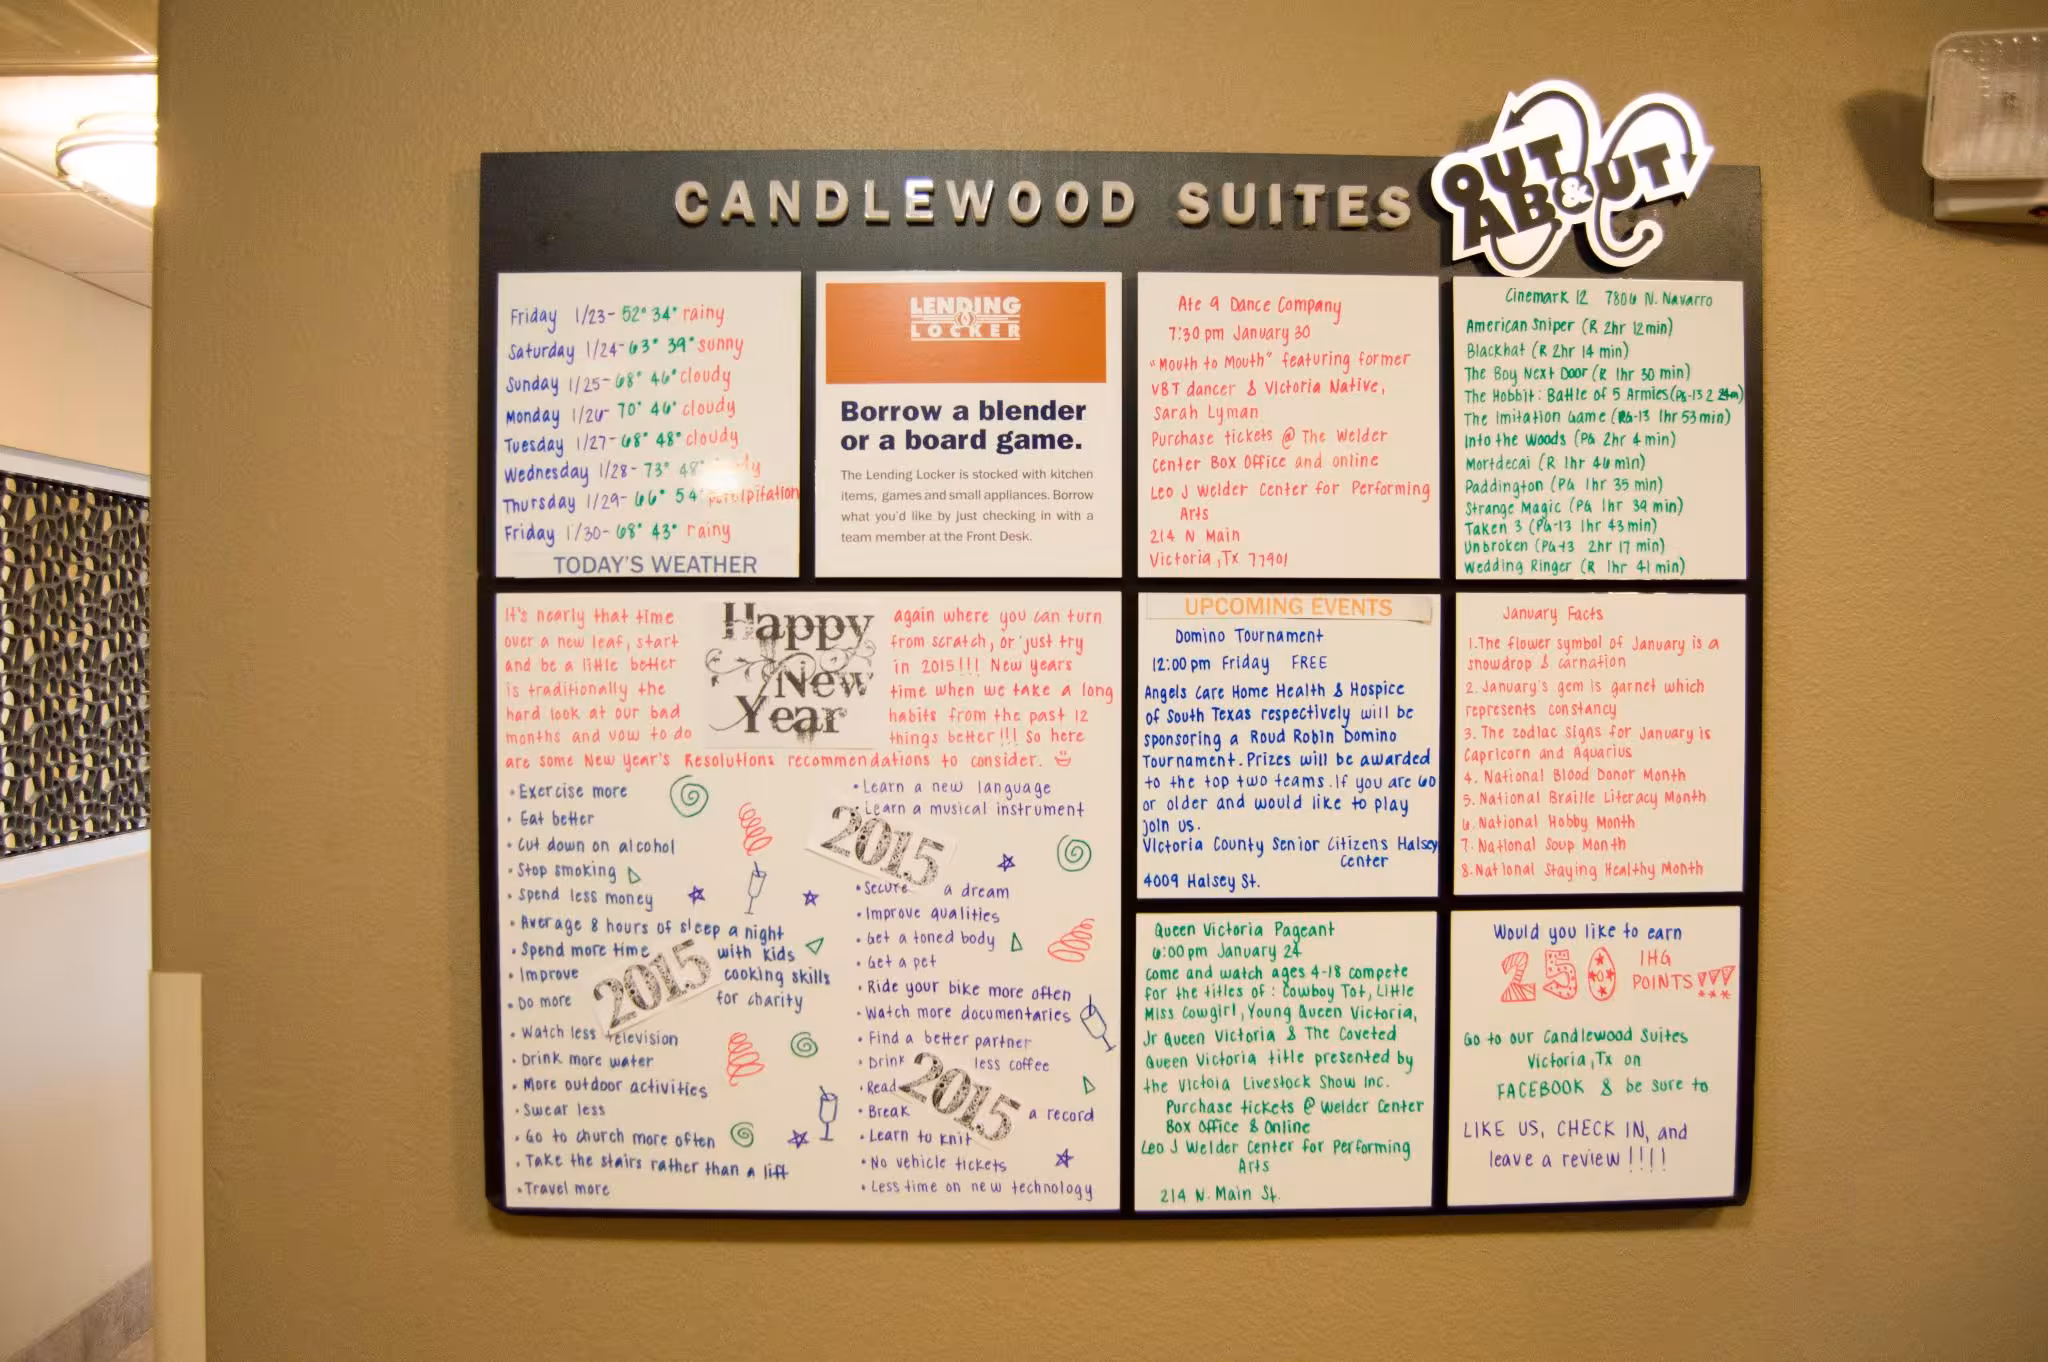 CANDLEWOOD SUITES
OUT & ABOUT
Friday 1/23- 52° 34° rainy
Saturday 1/24- 63° 39° sunny
Sunday 1/25- 68° 46° cloudy
Monday 1/26- 70° 46° cloudy
Tuesday 1/27- 68° 48° cloudy
Wednesday 1/28- 73° 48°
Thursday 1/29- 66° 54°
Friday 1/30- 68° 43° rainy
TODAY'S WEATHER
LENDING
LOCKER
Borrow a blender
or a board game.
The Lending Locker is stocked with kitchen
items, games and small appliances. Borrow
what you'd like by just checking in with a
team member at the Front Desk.
Ate 9 Dance Company
7:30 pm January 30
"Mouth to Mouth" featuring former
VBT dancer & Victoria Native,
Sarah Lyman
Purchase tickets @ The Welder
Center Box Office and online
Leo J Welder Center for Performing
Arts
214 N Main
Victoria, Tx 77901
Cinemark 12 7806 N. Navarro
American Sniper (R 2hr 12min)
Blackhat (R 2hr 14 min)
The Boy Next Door (R 1hr 30 min)
The Hobbit: Battle of 5 Armies (PG-13 2 24m)
The Imitation Game (PG-13 1hr 53min)
Into the Woods (PG 2hr 4 min)
Mortdecai (R 1hr 46 min)
Paddington (PG 1hr 35 min)
Strange Magic (PG 1hr 39 min)
Taken 3 (PG-13 1hr 43min)
Unbroken (PG-13 2hr 17 min)
Wedding Ringer (R 1hr 41 min)
It's nearly that time again where you can turn
over a new leaf, start from scratch, or just try
and be a little better in 2015!!! New years
is traditionally the time when we take a long
hard look at our bad habits from the past 12
months and vow to do things better!!! So here
are some New Year's Resolutions recommendations to consider.
Happy
New
Year
• Exercise more
• Eat better
• Cut down on alcohol
• Stop smoking
• Spend less money
• Average 8 hours of sleep a night
• Spend more time with kids
• Improve cooking skills
• Do more for charity
2015
• Watch less television
• Drink more water
• More outdoor activities
• Swear less
• Go to church more often
• Take the stairs rather than a lift
• Travel more
• Learn a new language
• Learn a musical instrument
2015
• Secure a dream
• Improve qualities
• Get a toned body
• Get a pet
• Ride your bike more often
• Watch more documentaries
• Find a better partner
• Drink less coffee
• Read
• Break a record
2015
• Learn to knit
• No vehicle tickets
• Less time on new technology
UPCOMING EVENTS
Domino Tournament
12:00pm Friday FREE
Angels Care Home Health & Hospice
of South Texas respectively will be
sponsoring a Roud Robin Domino
Tournament. Prizes will be awarded
to the top two teams. If you are 60
or older and would like to play
join us.
Victoria County Senior Citizens Halsey
Center
4009 Halsey St.
January Facts
1. The flower symbol of January is a
snowdrop & carnation
2. January's gem is garnet which
represents constancy
3. The zodiac signs for January is
Capricorn and Aquarius
4. National Blood Donor Month
5. National Braille Literacy Month
6. National Hobby Month
7. National Soup Month
8. National Staying Healthy Month
Queen Victoria Pageant
6:00pm January 24
come and watch ages 4-18 compete
for the titles of: Cowboy Tot, Little
Miss Cowgirl, Young Queen Victoria,
Jr Queen Victoria & The Coveted
Queen Victoria title presented by
the Victoia Livestock Show Inc.
Purchase tickets @ Welder Center
Box Office & Online
Leo J Welder Center for Performing
Arts
214 N. Main St.
Would you like to earn
250 IHG
POINTS!!!
Go to our Candlewood Suites
Victoria, Tx on
FACEBOOK & be sure to
LIKE US, CHECK IN, and
leave a review!!!!